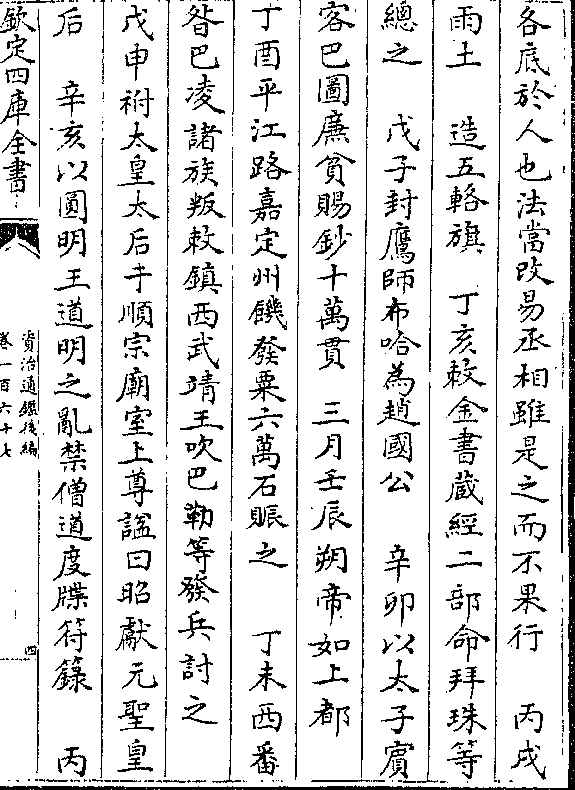 各底於人也法當改易丞相雖是之而不果行　丙戌
雨土　造五輅旗　丁亥敕金書蔵經二部命拜珠等
總之　戊子封鷹師布哈為趙國公　辛卯以太子賓
客巴圖廉貧賜鈔十萬貫　三月壬辰朔帝如上都
丁酉平江路嘉定州饑發粟六萬石賑之　丁未西番
昝巴凌諸族叛敕鎮西武靖王吹巴勒等發兵討之
戊申祔太皇太后于順宗廟室上尊諡曰昭獻元聖皇
后　辛亥以圓明王道明之亂禁僧道度牒符籙　丙
欽定四庫全書
資治通鑑後編
卷一百六十七
四